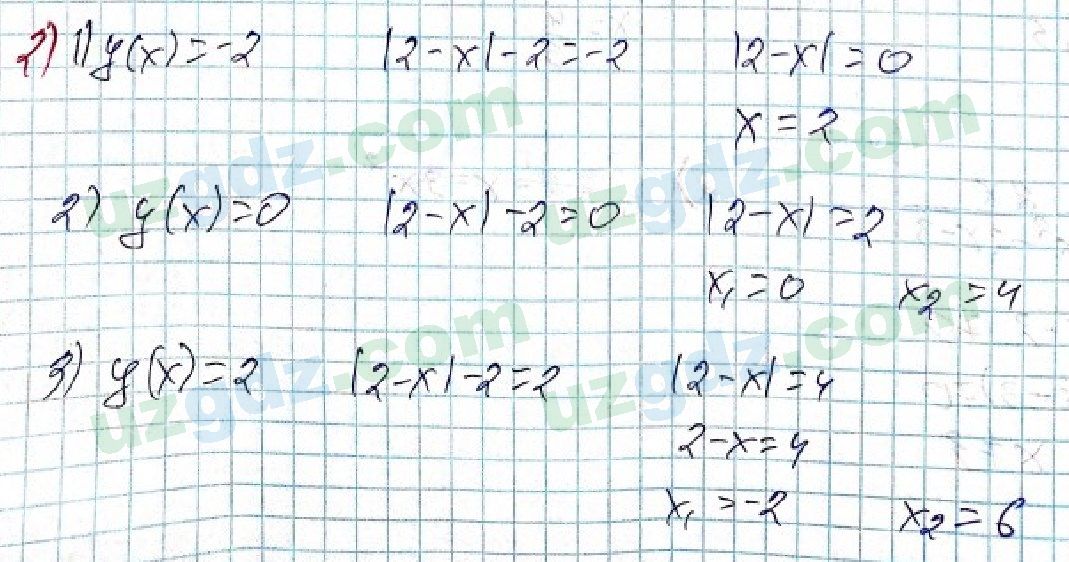 2) 1) y(x)=-2 |2-x|-2=-2 |2-x|=0
x=2
2) y(x)=0 |2-x|-2=0 |2-x|=2
x₁=0 x₂=4
3) y(x)=2 |2-x|-2=2 |2-x|=4
2-x=4
x₁=-2 x₂=6
uzgdz.com
uzgdz.com
uzgdz.com
uzgdz.com